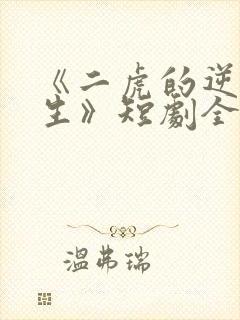 《二虎的逆
生》短劇全
溫弗瑞